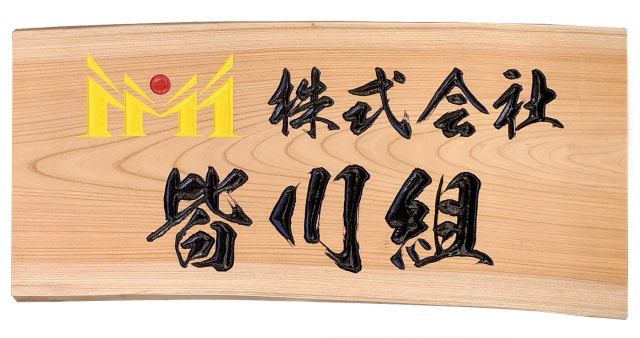 株式会社
皆川組